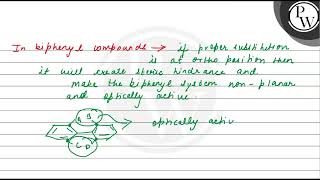 PW
In biphenyl compounds → if proper substitution
is at ortho position then
it will create steric hindrance and
make the biphenyl system non-planar
and optically active.
A B
C D
optically activ